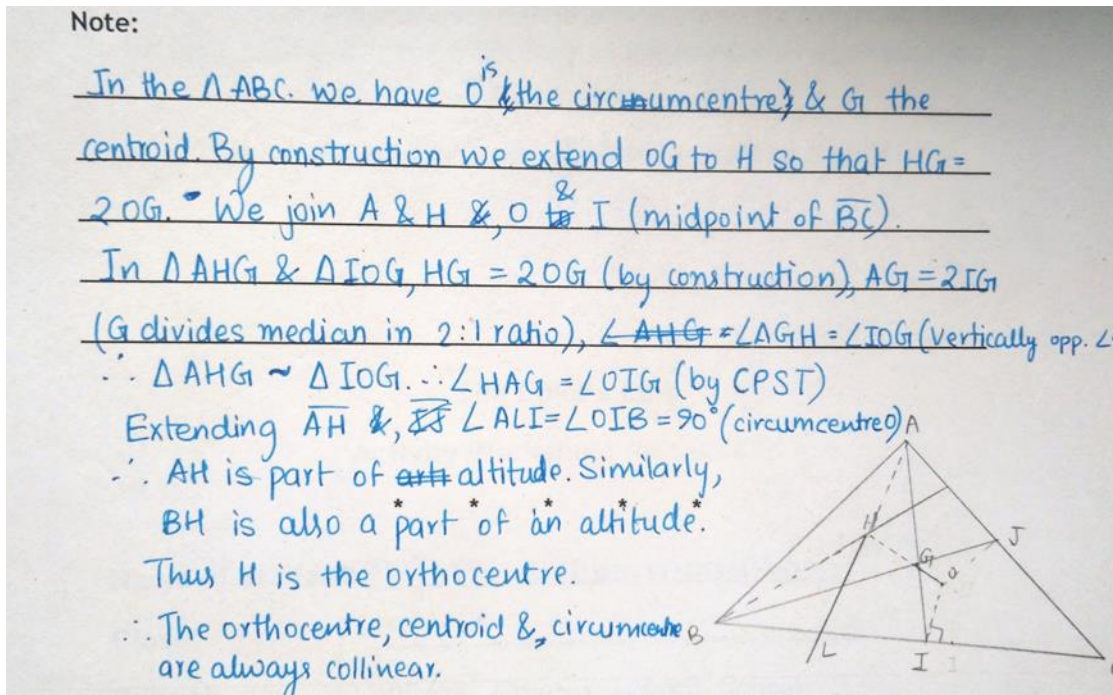 Note:
In the Δ ABC. we have O is {the circumcentre} & G the
centroid. By construction we extend OG to H so that HG =
2 OG. We join A & H &, O & I (midpoint of BC).
In Δ AHG & Δ IOG, HG = 2 OG (by construction), AG = 2 IG
(G divides median in 2:1 ratio), ∠AHG = ∠AGH = ∠IOG (Vertically opp. ∠
∴ Δ AHG ~ Δ IOG. ∴ ∠HAG = ∠OIG (by CPST)
Extending AH &, ∠ALI = ∠OIB = 90° (circumcentre O)
∴ AH is part of altitude. Similarly,
BH is also a part of an altitude.
* * * * *
Thus H is the orthocentre.
∴ The orthocentre, centroid &, circumcentre
are always collinear.
A
H
J
G
O
B
L
I
I